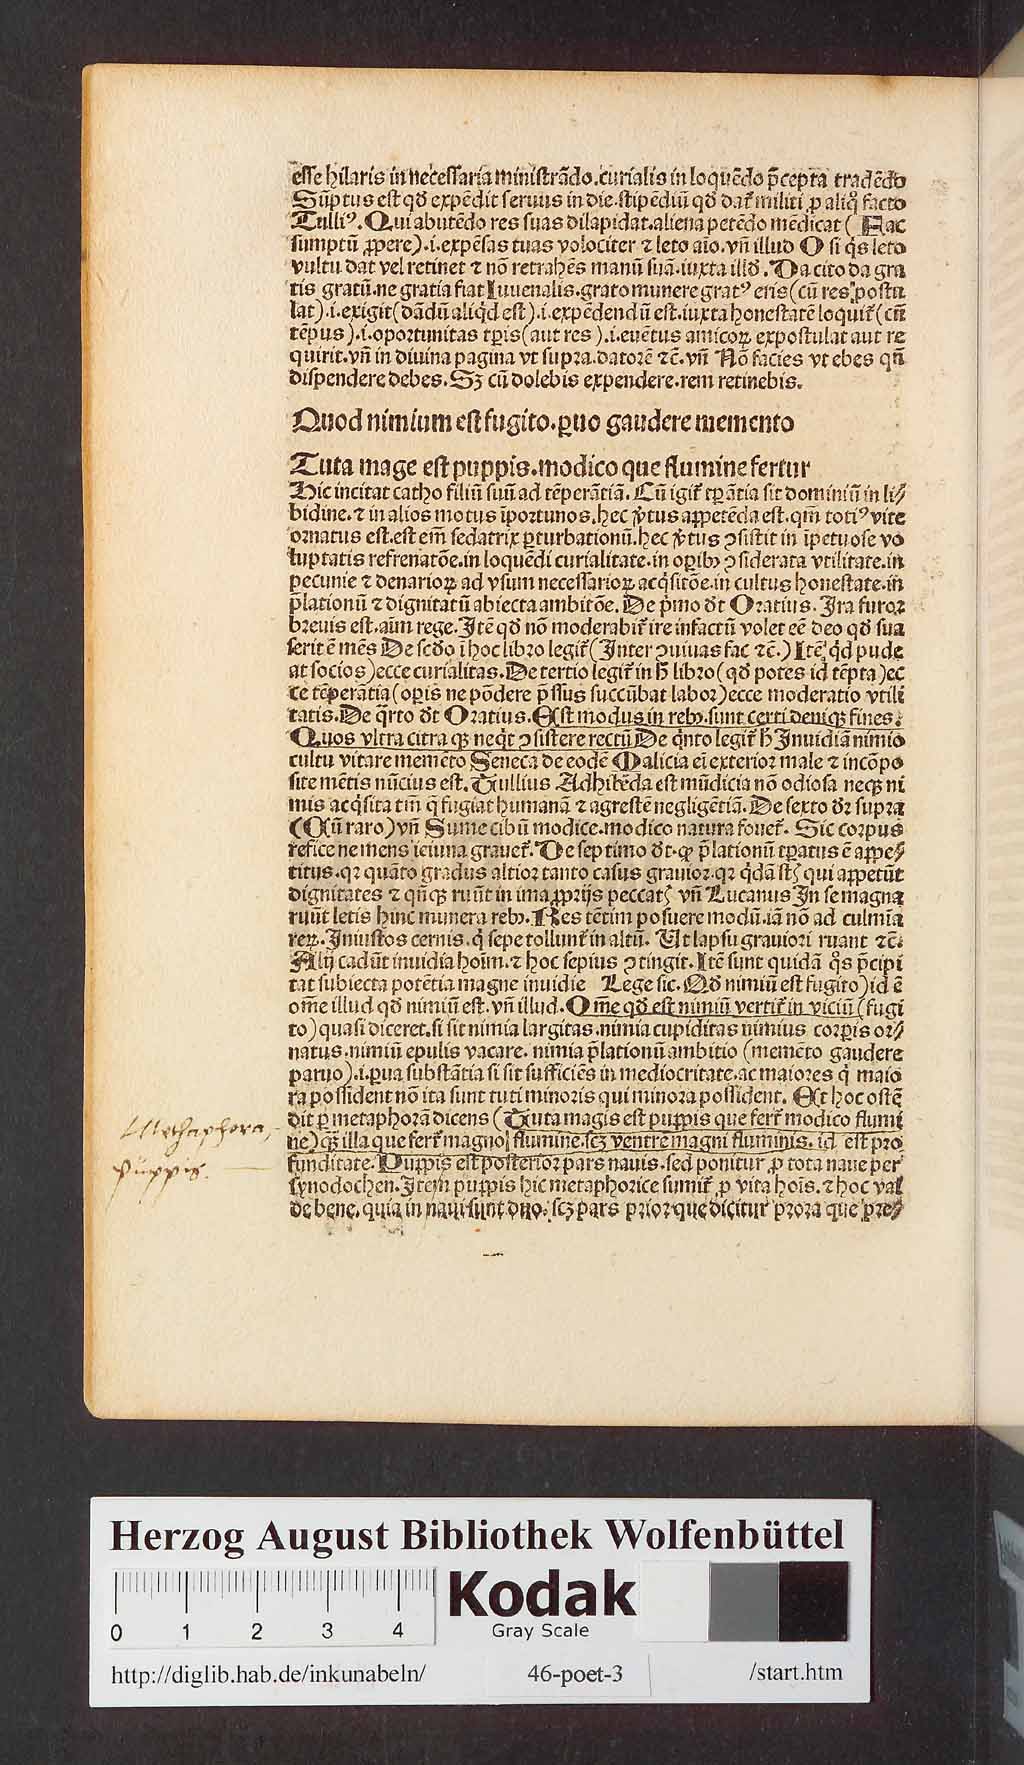 esse hilaris in necessaria ministrãdo.curialis in loquẽdo p̃cepta tradẽdo
Sũptus est qđ expẽdit seruus in die.stipẽdiũ qđ dat᷑ militi ꝓ aliq̊ facto
Tulliꝰ. Qui abutẽdo res suas dilapidat.aliena petẽdo mẽdicat ( Hac
sumptũ ꝓpere).i.expẽsas tuas volociter ⁊ leto aĩo.vñ illud O si q̇s leto
vultu dat vel retinet ⁊ nõ retrahẽs manũ suã.iuxta illđ. Da cito da gra
tis gratũ.ne gratia fiat Iuuenalis.grato munere gratꝰ eris (cũ res postu
lat).i.exigit(dãdũ aliq̇d est).i.expẽdendũ est.iuxta honestatẽ loquit᷑ (cũ
tẽpus).i.oportunitas tꝑis(aut res).i.euẽtus amicoꝝ expostulat aut re
quirit.vñ in diuina pagina vt supra.datorẽ ⁊c̃. vñ Nõ facies vt ebes qñ
dispendere debes. Sꝫ cũ dolebis expendere.rem retinebis.
Quod nimium est fugito.ꝑuo gaudere memento
Tuta mage est puppis.modico que flumine fertur
Hic incitat catho filiũ suũ ad tẽperãtiã. Cũ igit᷑ tꝑãtia sit dominiũ in li⸗
bidine.⁊ in alios motus ĩportunos.hec v̇tus appetẽda est.qm̃ totiꝰ vite
ornatus est.est em̃ sedatrix ꝑturbationũ.hec v̇tus ↄsistit in ĩpetuose vo
luptatis refrenatõe.in loquẽdi curialitate.in oꝑibꝫ ↄsiderata vtilitate.in
pecunie ⁊ denarioꝝ ad vsum necessarioꝝ acq̇sitõe.in cultus honestate.in
p̃lationũ ⁊ dignitatũ abiecta ambitõe. De p̃mo đt Oratius. Ira furor
breuis est.aĩm rege. Itẽ qđ nõ moderabit᷑ ire infactũ volet eẽ deo qđ sua
serit ẽ mẽs De scđo ĩ hoc libro legit᷑ (Inter ↄuiuas fac ⁊c̃.) Itẽ q̇d pude
at socios)ecce curialitas. De tertio legit᷑ in ħ libro (qđ potes id tẽpta)ec
ce tẽperãtia (oꝑis ne põdere p̃ssus succũbat labor)ecce moderatio vtili
tatis. De q̃rto đt Oratius. Est modus in rebꝫ.sunt certi deniqꝫ fines.
Quos vltra citra qꝫ neq̇t ↄsistere rectũ De q̇nto legit᷑ ħ Inuidiã nimio
cultu vitare memẽto Seneca de eodẽ Malicia ei exterior male ⁊ incõpo
site mẽtis nũcius est. Tullius Adhibẽda est mũdicia nõ odiosa neqꝫ ni
mis acq̇sita tm̃ q̃ fugiat humanã ⁊ agrestẽ negligẽtiã. De sexto đr supra
(Cũ raro)vñ Sume cibũ modice.modico natura fouet᷑. Sic corpus
refice ne mens ieiuna grauet᷑. De septimo đt.ꝙ p̃lationũ tꝑatus ẽ appe⸗
titus.qꝛ quãto gradus altior tanto casus grauior.qꝛ q̇dã st̃ qui appetũt
dignitates ⁊ qñqꝫ ruũt in ima ꝓprijs peccat̃ vñ Lucanus In se magna
ruũt letis hinc munera rebꝫ. Res tẽtim posuere modũ.iã nõ ad culmĩa
reꝝ. Iniustos cernis.q̇ sepe tollunt᷑ in altũ. Ut lapsu grauiori ruant ⁊c̃.
Alij cadũt inuidia hoĩm.⁊ hoc sepius ↄtingit. Itẽ sunt quidã q̊s p̃cipi
tat subiecta potẽtia magne inuidie Lege sic. Qđ nimiũ est fugito)id ẽ
om̃e illud qđ nimiũ est.vñ illud. Om̃e qđ est nimiũ vertit᷑ in viciũ (fugi
to)quasi diceret.si sit nimia largitas.nimia cupiditas nimius corꝑis or⸗
natus.nimiũ epulis vacare. nimia p̃lationũ ambitio (memẽto gaudere
paruo).i.ꝑua substãtia si sit sufficiẽs in mediocritate.ac maiores q̇ maio
ra possident nõ ita sunt tuti minoris qui minora possident. Et hoc ostẽ
dit ꝑ metaphorã dicens (Tuta magis est puppis que fert᷑ modico flumi
ne)qꝫ illa que fert᷑ magno flumine.scꝫ ventrẽ magni fluminis. id est pro
funditate. Puppis est posterior pars nauis.sed ponitur ꝓ tota naue per
synodochen. Item puppis hic metaphorice sumit᷑ ꝓ vita hoĩs.⁊ hoc val
de bene. quia in naui sunt duo. scꝫ pars prior que dicitur prora que pre⸗
Methaphora,
puppis.
Herzog August Bibliothek Wolfenbüttel
0 1 2 3 4
Kodak
Gray Scale
http://diglib.hab.de/inkunabeln/ 46-poet-3 /start.htm